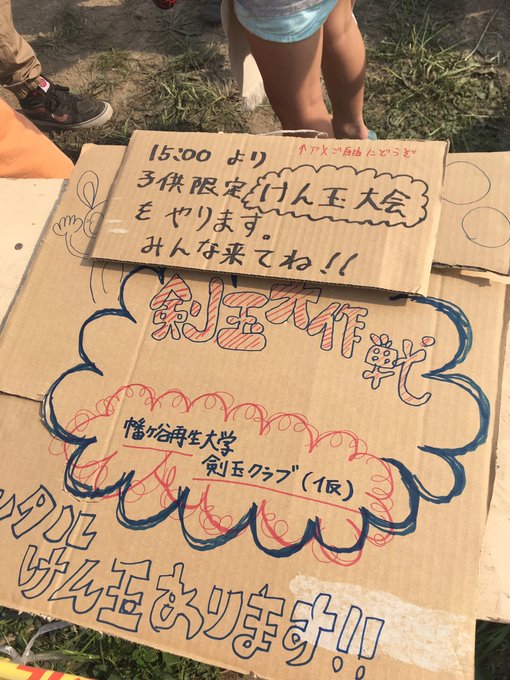 15:00 より
↑アメご自由にどうぞ
子供限定 けん玉大会
をやります。
みんな来てね!!
剣玉大作戦
幡ヶ谷再生大学
剣玉クラブ(仮)
ンタル
けん玉あります!!